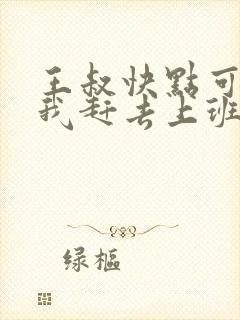 王叔快點可
我赶去上班
绿樞